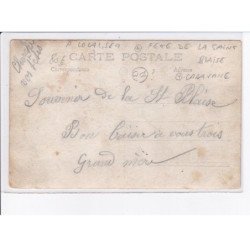 A LOCALISER @ FETE DE LA SAINT
BLAISE
CARTE POSTALE
Correspondance Adresse
@ CARAVANE
Souvenir de la St Blaise
Bon baiser à vous trois
Grand mère